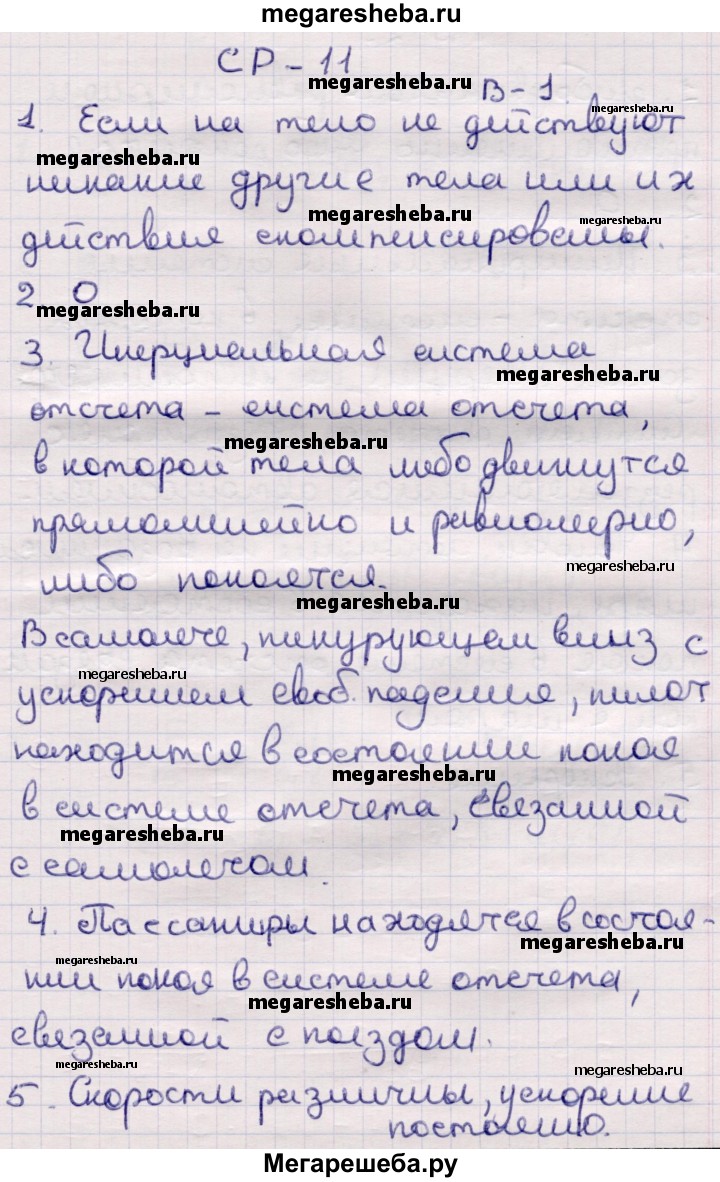 megaresheba.ru
СР - 11
megaresheba.ru
В - 1.
megaresheba.ru
1. Если на тело не действуют
megaresheba.ru
никакие другие тела или их
megaresheba.ru
megaresheba.ru
действия скомпенсированы.
2. 0
megaresheba.ru
3. Инерциальная система
megaresheba.ru
отсчета - система отсчета,
megaresheba.ru
в которой тела либо движутся
прямолинейно и равномерно,
megaresheba.ru
либо покоятся.
megaresheba.ru
В самолете, пикирующем вниз с
megaresheba.ru
ускорением своб. падения, пилот
находится в состоянии покоя
megaresheba.ru
в системе отсчета, связанной
megaresheba.ru
с самолетом.
4. Пассажиры находятся в состоя-
megaresheba.ru
megaresheba.ru
нии покоя в системе отсчета,
megaresheba.ru
связанной с поездом.
megaresheba.ru
megaresheba.ru
5. Скорости различны, ускорение
постоянно.
Мегарешеба.ру